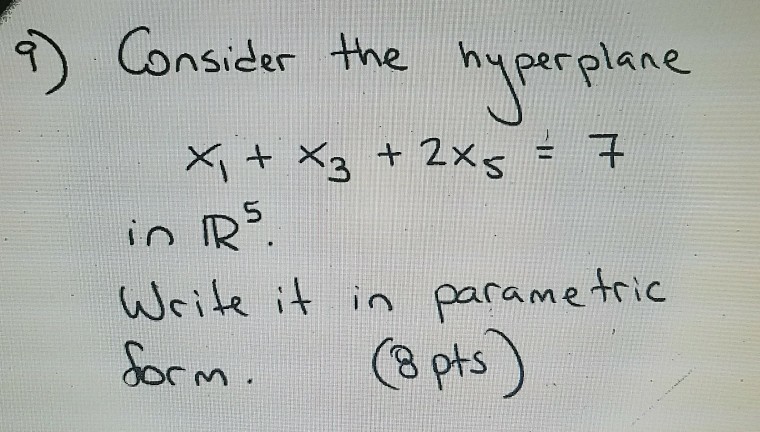 9) Consider the hyperplane
x₁ + x₃ + 2x₅ = 7
in ℝ⁵.
Write it in parametric
form. (8 pts)